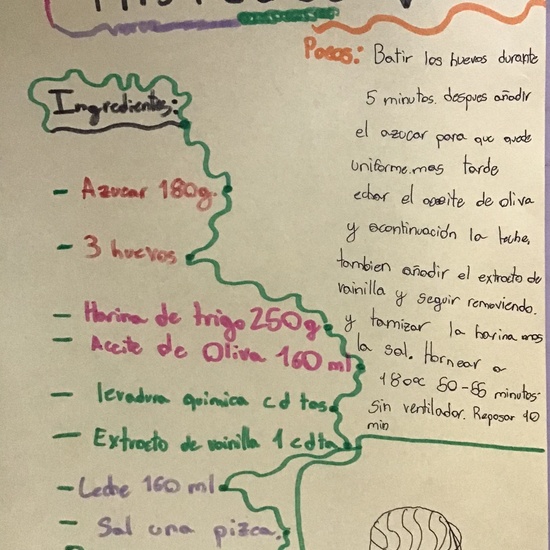 Ingredientes:
- Azucar 180g.
- 3 huevos
- Harina de trigo 250g.
- Aceite de Oliva 160 ml
- levadura quimica cd tas
- Extracto de vainilla 1 cdta
- Leche 160 ml
- Sal una pizca.
Pasos: Batir los huevos durante
5 minutos. despues añadir
el azucar para que quede
uniforme. mas tarde
echar el aceite de oliva
y acontinuación la leche,
tambien añadir el extracto de
vainilla y seguir removiendo.
y tamizar la harina
la sal. Hornear a
180ºc minutos.
sin ventilador. Reposar 10
min